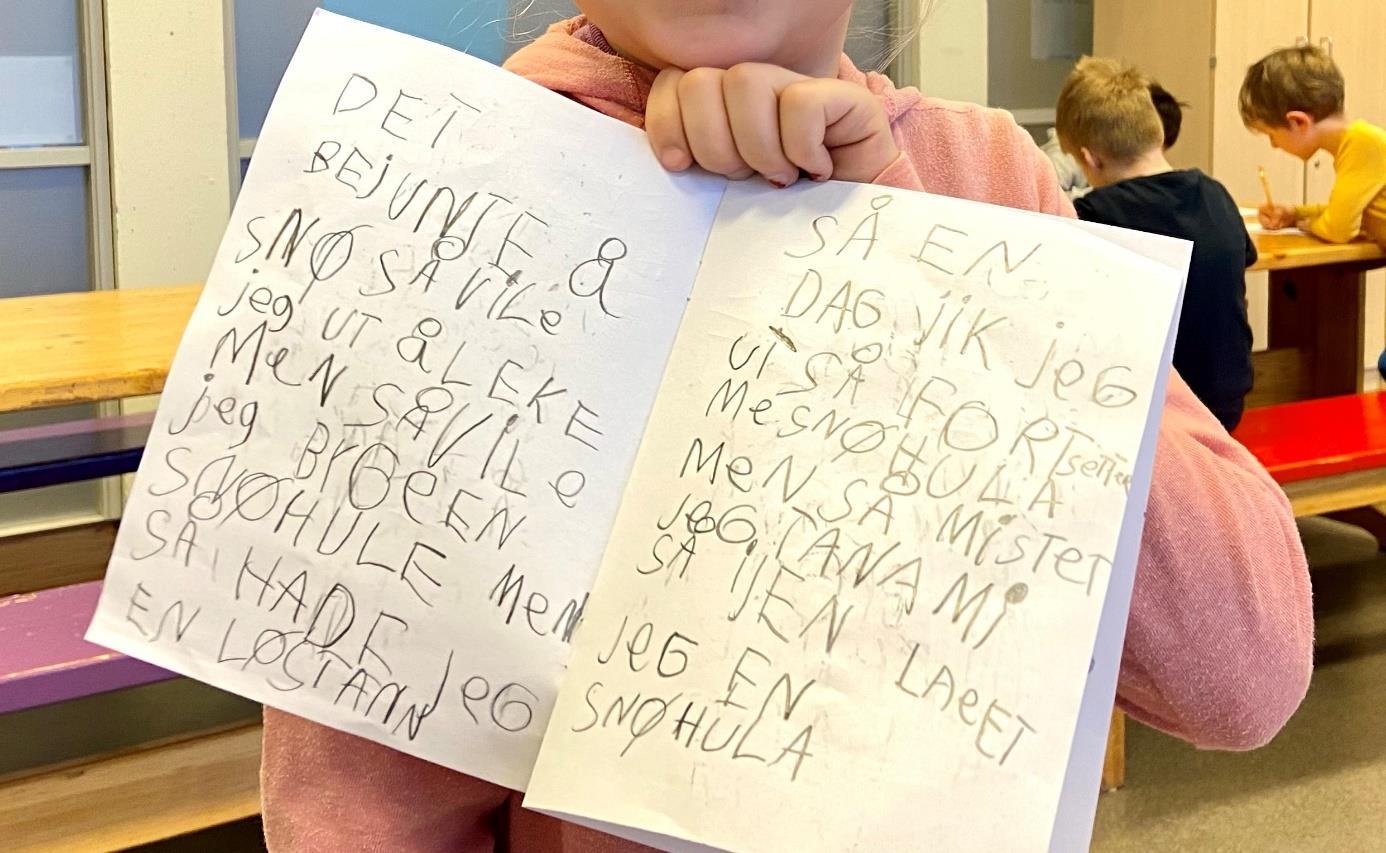 DET
BEjUNTE Å
SNØ SÅ ViLe
jeg UT ÅLEKE
MeN SÅ ViLe
jeg BYGeEN
SNØHULE MeN
SÅ HADE jeG
EN LØSTANN
SÅ EN
DAG jiK jeG
UT SÅ FORTsetter
MeSNØHULA
MeN SÅ MisTeT
jeG TANNA Mi
SÅ IJEN LAGET
jeG EN
SNØHULA